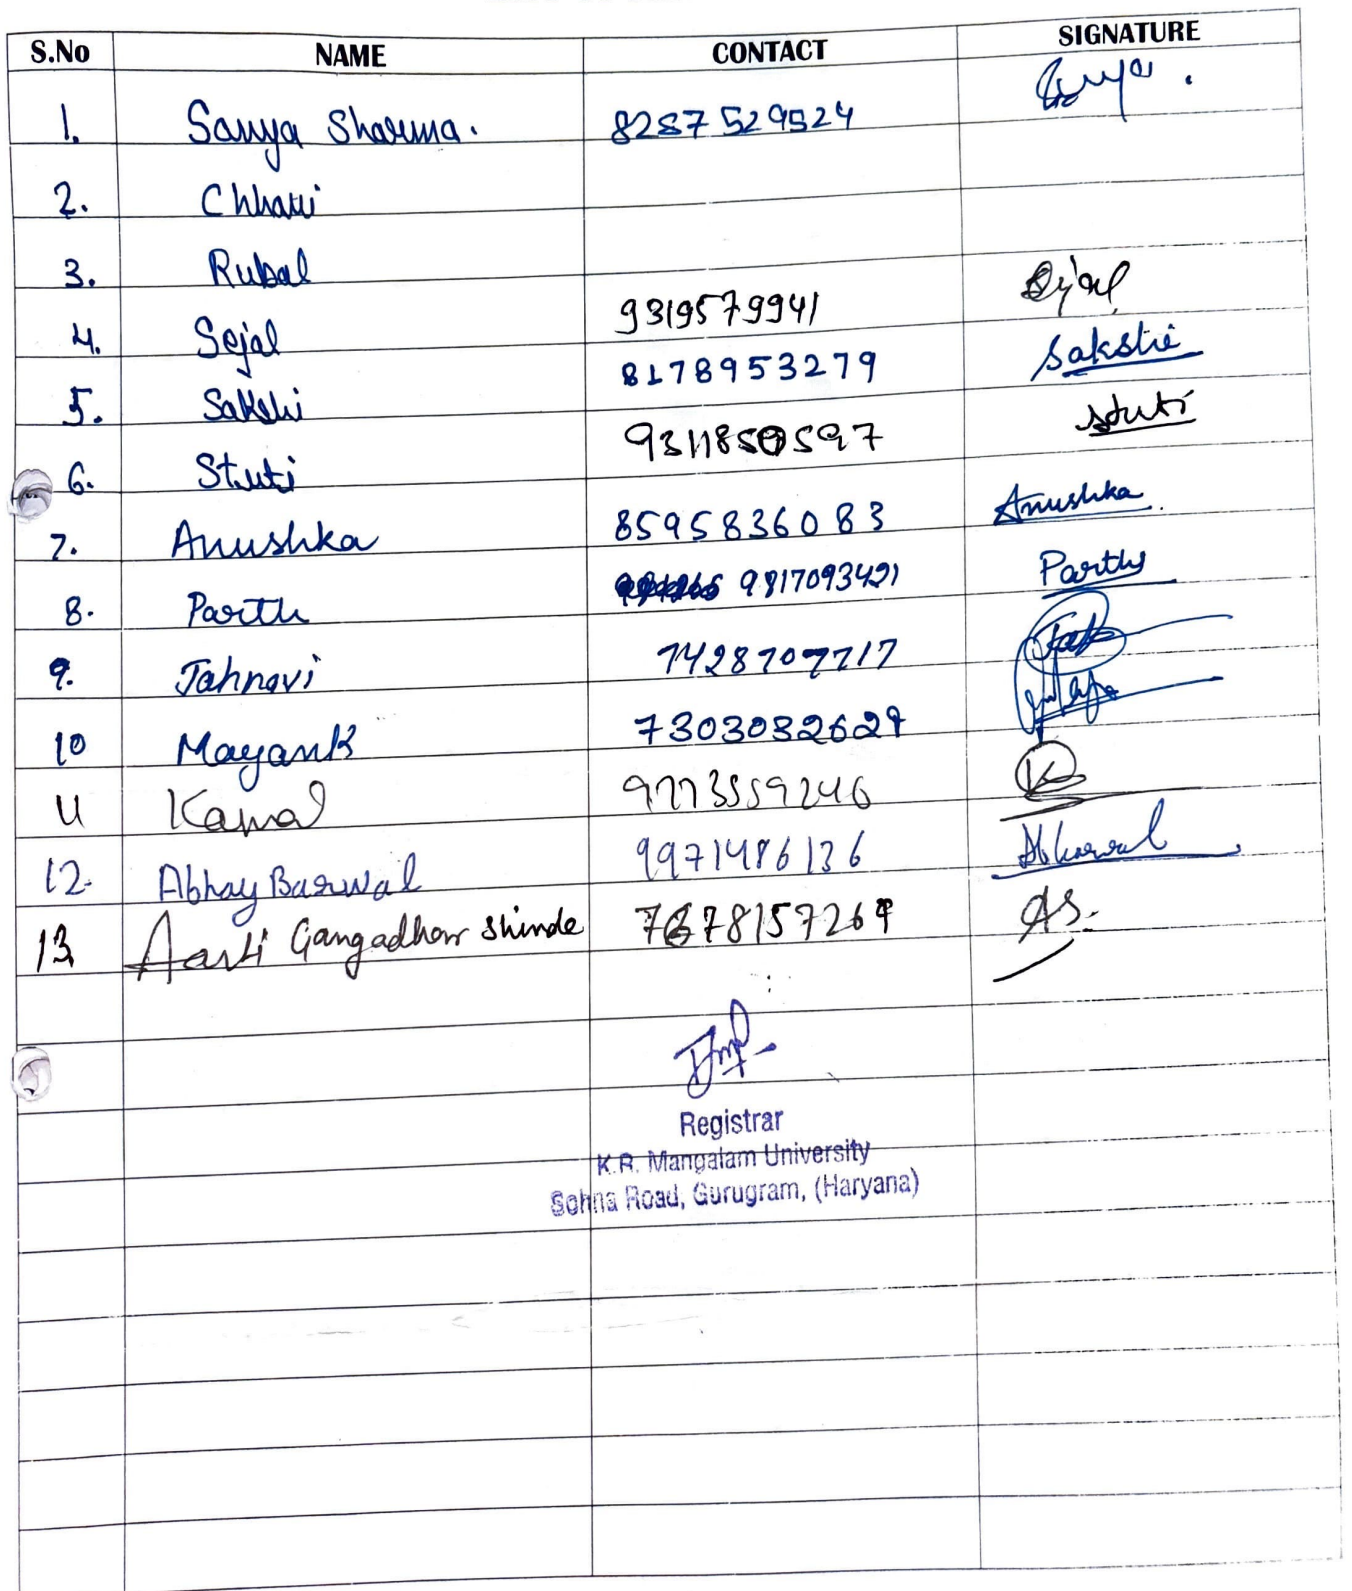 S.No NAME CONTACT SIGNATURE
1. Sanya Sharma. 8287529524
2. Chhavi
3. Rubal
4. Sejal 9319579941 Sejal
5. Sakshi 8178953279 Sakshi
6. Stuti 9311850597 Stuti
7. Anushka 8595836083 Anushka.
8. Parth 9817093421 Parth
9. Jahnavi 7428707717
10 Mayank 7303032629
11 Kamal 9773559246
12. Abhay Barwal 9971486136
13 Aarti Gangadhar Shinde 7678157269 AS.
Registrar
K.R. Mangalam University
Sohna Road, Gurugram, (Haryana)